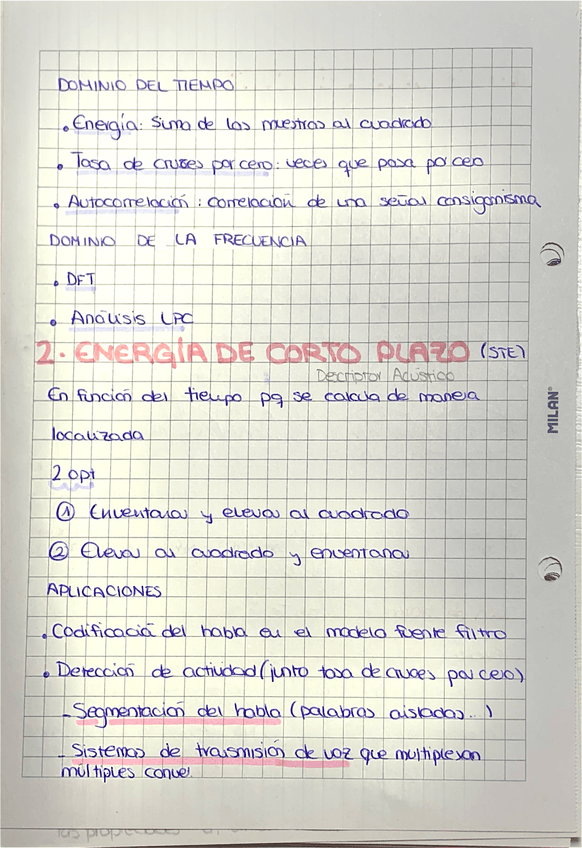 DOMINIO DEL TIEMPO
• Energía: Suma de las muestras al cuadrado
• Tasa de cruces por cero: veces que pasa por ceo
• Autocorrelación: correlación de una señal consigomisma
DOMINIO DE LA FRECUENCIA
• DFT
• Análisis LPC
2. ENERGÍA DE CORTO PLAZO (STE)
Descriptor Acústico
En función del tiempo pq se calcula de manera
localizada
2 opt
① Enventanar y elevar al cuadrado
② Elevar al cuadrado y enventanar
APLICACIONES
• Codificació del habla en el modelo fuente filtro
• Detección de actividad (junto tasa de cruces por cero)
- Segmentación del habla (palabras aisladas...)
- Sistemas de trasmisión de voz que multiplexan
múltiples conver.
MILAN
las propiedades